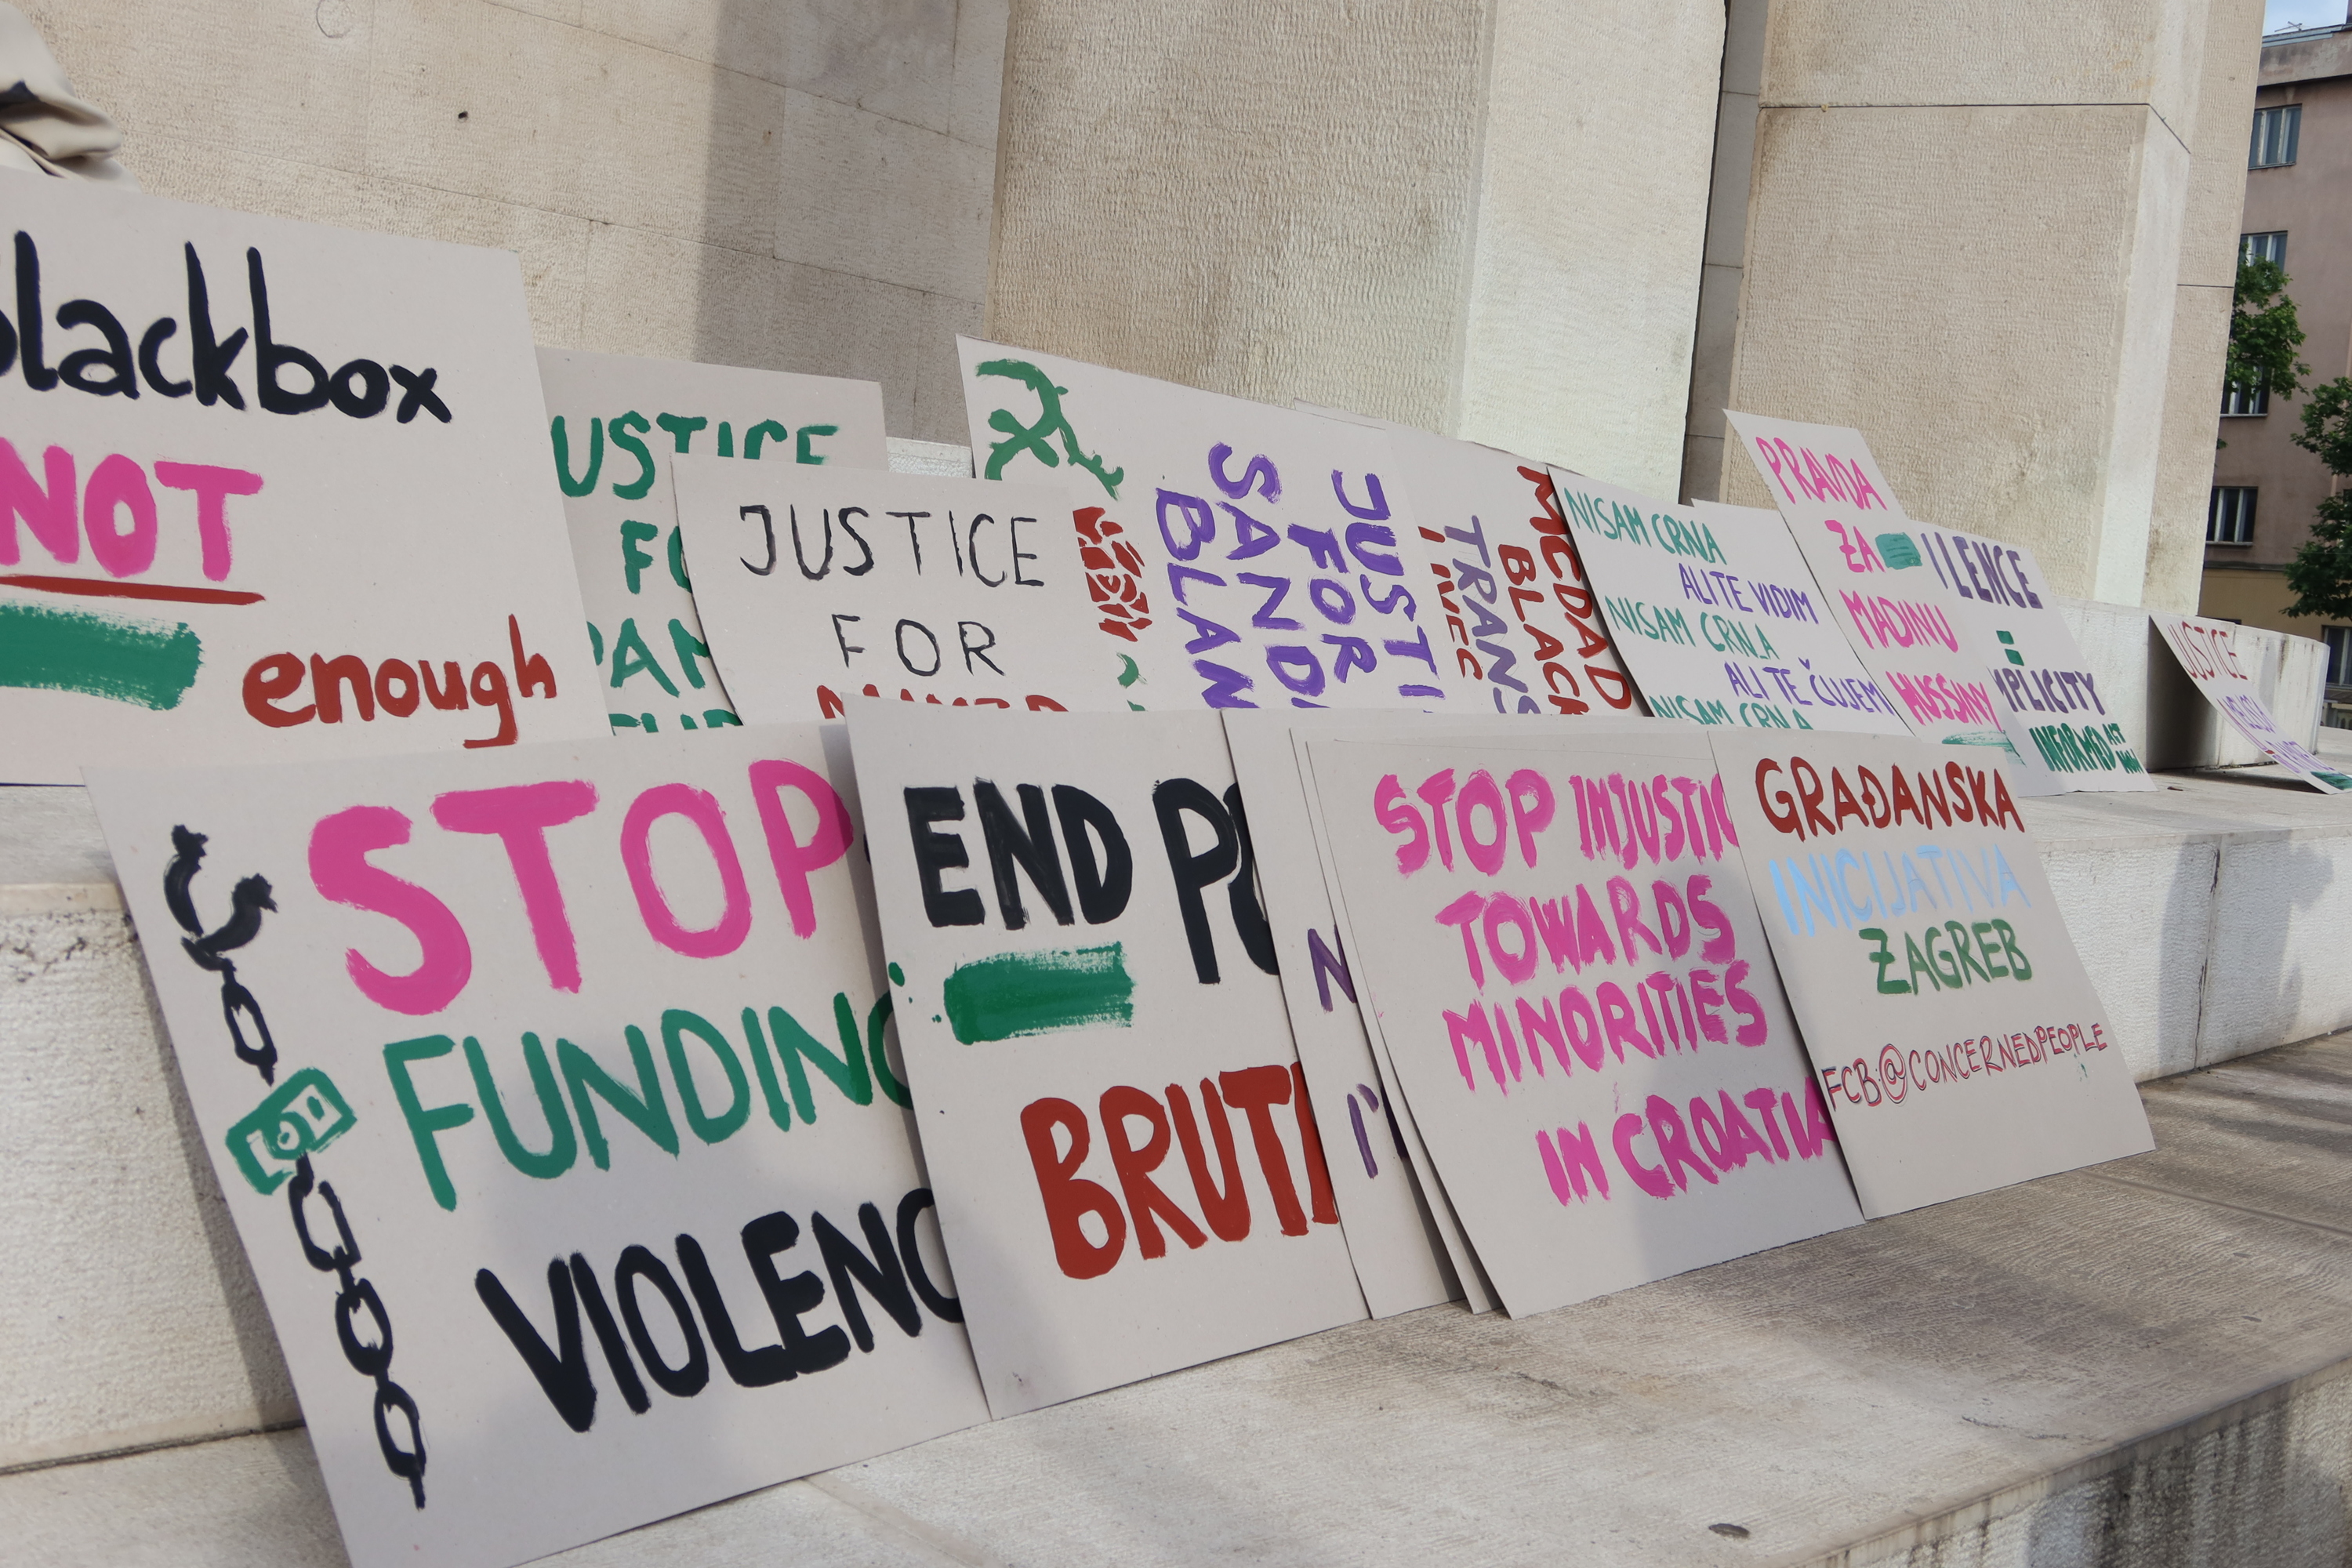 blackbox
NOT
enough
JUSTICE
FOR
JUSTICE
FOR
JUSTI
FOR
SAND
BLAN
MCDAD
BLACK
TRANS
LIVES
NISAM CRNA
ALI TE VIDIM
NISAM CRNA
ALI TE ČUJEM
NISAM CRNA
PRAVDA
ZA
MADINU
HUSSINY
ILENCE
MPLICITY
INFORMED
JUSTICE
STOP
FUNDING
VIOLENC
END PO
BRUTA
STOP INJUSTIC
TOWARDS
MINORITIES
IN CROATIA
GRAĐANSKA
INICIJATIVA
ZAGREB
FCB@CONCERNEDPEOPLE